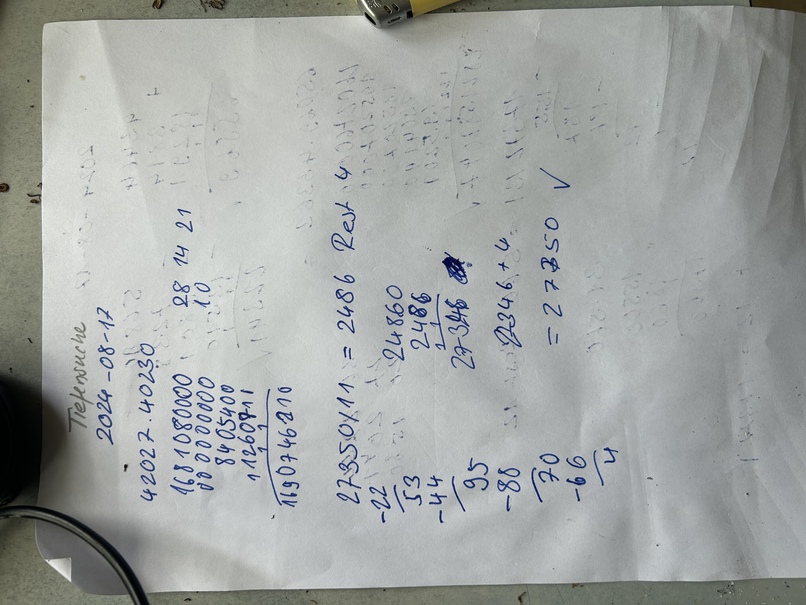 Tiefensuche
2024-08-17
42027.40230
1681080000 28 14 21
000000000 10
8405400
1260810
1 1 1
1690746210
27350/11 = 2486 Rest 4
-22
53 24860
-44 2486
1 1
95 27346
-88 27346+4
70 = 27350 ✓
-66
4